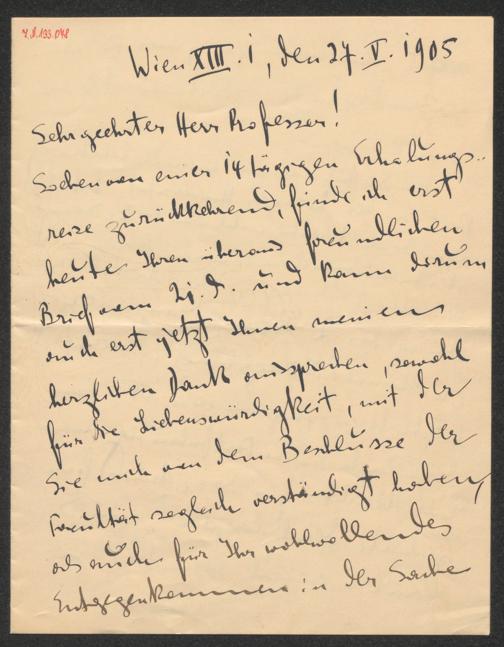 Wien XIII. 1, den 27. V. 1905
Sehr geehrter Herr Professor!
Soeben von einer 14 tägigen Erholungs-
reise zurückkehrend, finde ich erst
heute Ihren überaus freundlichen
Brief vom 21. d. und kann darum
auch erst jetzt Ihnen meinen
herzlichen Dank aussprechen, sowohl
für die Liebenswürdigkeit, mit der
Sie mich von dem Beschlusse der
Facultät sogleich verständigt haben,
als auch für Ihr wohlwollendes
Entgegenkommen in der Sache